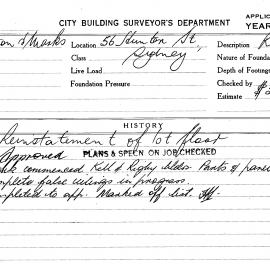 CITY BUILDING SURVEYOR'S DEPARTMENT
APPLIC
YEAR
on & Marks Location 56 Hunter St, Description R
Class Sydney Nature of Founda
Live Load Depth of Footing
Foundation Pressure Checked by
Estimate $
HISTORY
Reinstatement of 1st floor
Approved PLANS & SPECN ON JOB CHECKED
commenced Kell & Rigby bldrs. Parts of
false ceilings in progress.
completed to app. Marked off list.